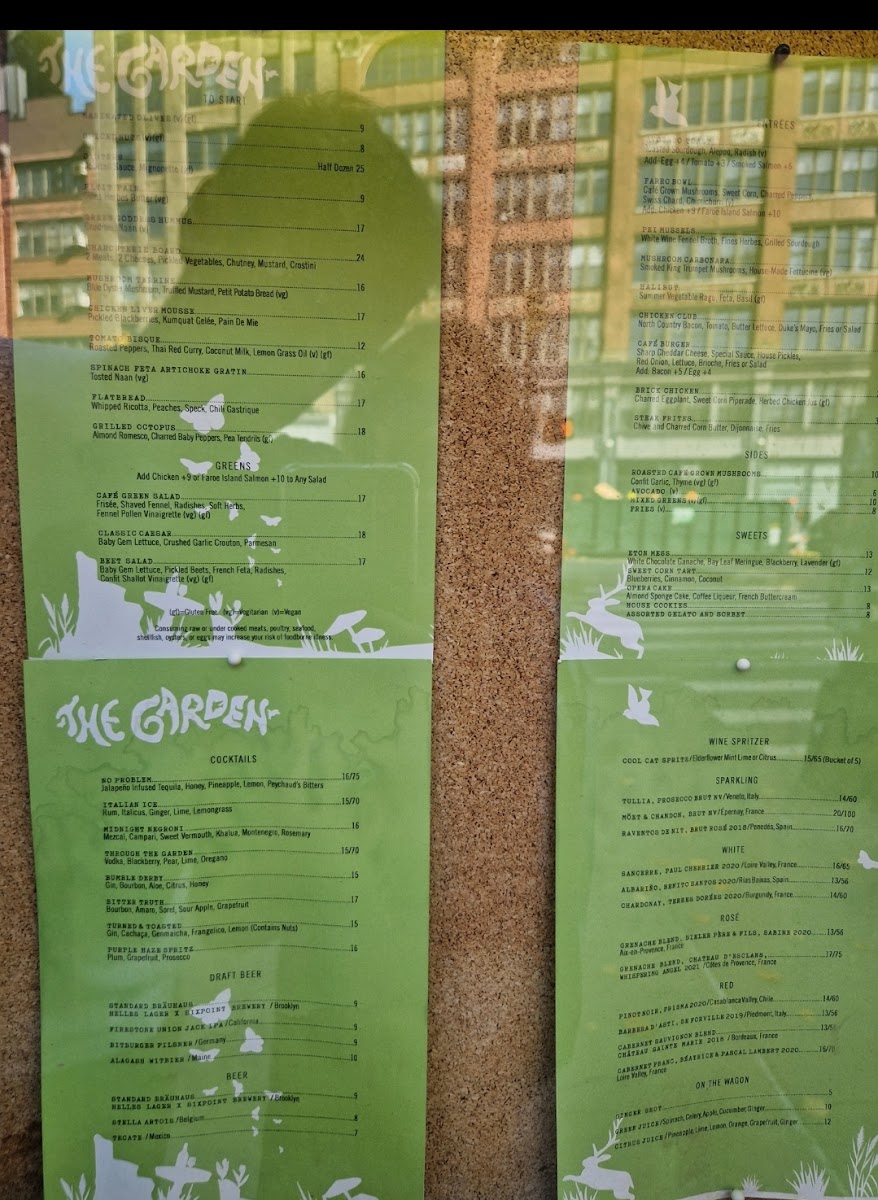 THE GARDEN
TO START
MARINATED OLIVES (v)(gf) 9
8
Sauce, Mignonette (gf) Half Dozen 25
Herbes Butter (vg) 9
GREEN GODDESS HUMMUS 17
Naan (v)
CHARCUTERIE BOARD 24
2 Meats, 2 Cheeses, Pickled Vegetables, Chutney, Mustard, Crostini
MUSHROOM TERRINE 16
Blue Oyster Mushroom, Truffled Mustard, Petit Potato Bread (vg)
CHICKEN LIVER MOUSSE 17
Pickled Blackberries, Kumquat Gelée, Pain De Mie
TOMATO BISQUE 12
Roasted Peppers, Thai Red Curry, Coconut Milk, Lemon Grass Oil (v) (gf)
SPINACH FETA ARTICHOKE GRATIN 16
Tosted Naan (vg)
FLATBREAD 17
Whipped Ricotta, Peaches, Speck, Chili Gastrique
GRILLED OCTOPUS 18
Almond Romesco, Charred Baby Peppers, Pea Tendrils (gf)
GREENS
Add Chicken +9 of Faroe Island Salmon +10 to Any Salad
CAFÉ GREEN SALAD 17
Frisée, Shaved Fennel, Radishes, Soft Herbs,
Fennel Pollen Vinaigrette (vg) (gf)
CLASSIC CAESAR 18
Baby Gem Lettuce, Crushed Garlic Crouton, Parmesan
BEET SALAD 17
Baby Gem Lettuce, Pickled Beets, French Feta, Radishes,
Confit Shallot Vinaigrette (vg) (gf)
(gf)=Gluten Free (vg)=Vegitarian (v)=Vegan
Consuming raw or under cooked meats, poultry, seafood,
shellfish, oysters, or eggs may increase your risk of foodborne illness.
ENTRÉES
Toasted Sourdough, Aleppo, Radish (v)
Add: Egg +4 / Tomato +3 / Smoked Salmon +6
FARRO BOWL
Café Grown Mushrooms, Sweet Corn, Charred Peppers
Swiss Chard, Chimichurri (v)
Add: Chicken +9 / Faroe Island Salmon +10
PEI MUSSELS
White Wine Fennel Broth, Fines Herbes, Grilled Sourdough
MUSHROOM CARBONARA
Smoked King Trumpet Mushrooms, House-Made Fettucine (vg)
HALIBUT
Summer Vegetable Ragu, Feta, Basil (gf)
CHICKEN CLUB
North Country Bacon, Tomato, Butter Lettuce, Duke's Mayo, Fries or Salad
CAFÉ BURGER
Sharp Cheddar Cheese, Special Sauce, House Pickles,
Red Onion, Lettuce, Brioche, Fries or Salad
Add: Bacon +5 / Egg +4
BRICK CHICKEN
Charred Eggplant, Sweet Corn Piperade, Herbed Chicken Jus (gf)
STEAK FRITES
Chive and Charred Corn Butter, Dijonnaise, Fries
SIDES
ROASTED CAFÉ GROWN MUSHROOMS 10
Confit Garlic, Thyme (vg) (gf)
AVOCADO (v) 6
MIXED GREENS (v)(gf) 10
FRIES (v) 8
SWEETS
ETON MESS 13
White Chocolate Ganache, Bay Leaf Meringue, Blackberry, Lavender (gf)
SWEET CORN TART 12
Blueberries, Cinnamon, Coconut
OPERA CAKE 13
Almond Sponge Cake, Coffee Liqueur, French Buttercream
HOUSE COOKIES 8
ASSORTED GELATO AND SORBET 8
THE GARDEN
COCKTAILS
NO PROBLEM 16/75
Jalapeño Infused Tequila, Honey, Pineapple, Lemon, Peychaud's Bitters
ITALIAN ICE 15/70
Rum, Italicus, Ginger, Lime, Lemongrass
MIDNIGHT NEGRONI 16
Mezcal, Campari, Sweet Vermouth, Khalua, Montenegro, Rosemary
THROUGH THE GARDEN 15/70
Vodka, Blackberry, Pear, Lime, Oregano
BUMBLE DERBY 15
Gin, Bourbon, Aloe, Citrus, Honey
BITTER TRUTH 17
Bourbon, Amaro, Sorel, Sour Apple, Grapefruit
TURNED & TOASTED 15
Gin, Cachaça, Genmaicha, Frangelico, Lemon (Contains Nuts)
PURPLE HAZE SPRITZ 16
Plum, Grapefruit, Prosecco
DRAFT BEER
STANDARD BRÄUHAUS
HELLES LAGER X SIXPOINT BREWERY / Brooklyn 9
FIRESTONE UNION JACK IPA / California 9
BITBURGER PILSNER / Germany 9
ALAGASH WITBIER / Maine 10
BEER
STANDARD BRÄUHAUS
HELLES LAGER X SIXPOINT BREWERY / Brooklyn 9
STELLA ARTOIS / Belgium 8
TECATE / Mexico 7
WINE SPRITZER
COOL CAT SPRITS / Elderflower Mint Lime or Citrus 15/65 (Bucket of 5)
SPARKLING
TULLIA, PROSECCO BRUT NV / Veneto, Italy 14/60
MÖET & CHANDON, BRUT NV / Épernay, France 20/100
RAVENTOS DE NIT, BRUT ROSÉ 2018 / Penedès, Spain 16/70
WHITE
SANCERRE, PAUL CHERRIER 2020 / Loire Valley, France 16/65
ALBARIÑO, BENITO SANTOS 2020 / Rias Baixas, Spain 13/56
CHARDONAY, TERRES DORÉES 2020 / Burgundy, France 14/60
ROSÉ
GRENACHE BLEND, BIELER PÈRE & FILS, SABINE 2020 13/56
Aix-en-Provence, France
GRENACHE BLEND, CHATEAU D'ESCLANS, 17/75
WHISPERING ANGEL 2021 / Côtes de Provence, France
RED
PINOT NOIR, PRISMA 2020 / Casablanca Valley, Chile 14/60
BARBERA D'ASTI, DE FORVILLE 2019 / Piedmont, Italy 13/56
CABERNET SAUVIGNON BLEND 13/56
CHÂTEAU SAINTE MARIE 2018 / Bordeaux, France
CABERNET FRANC, BÉATRICE & PASCAL LAMBERT 2020 16/70
Loire Valley, France
ON THE WAGON
GINGER SHOT 5
GREEN JUICE / Spinach, Celery, Apple, Cucumber, Ginger 10
CITRUS JUICE / Pineapple, Lime, Lemon, Orange, Grapefruit, Ginger 12